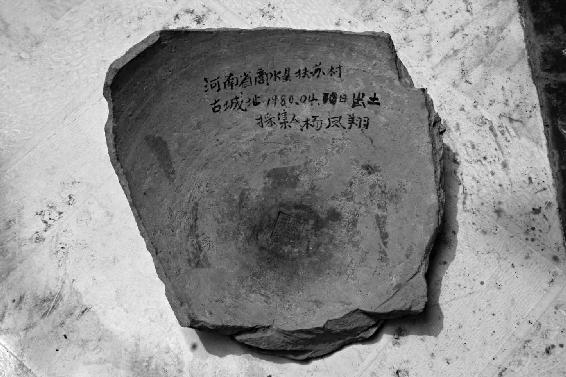 河南省商水县扶苏村
古城址1980.04.10日出土
採集人杨凤翔